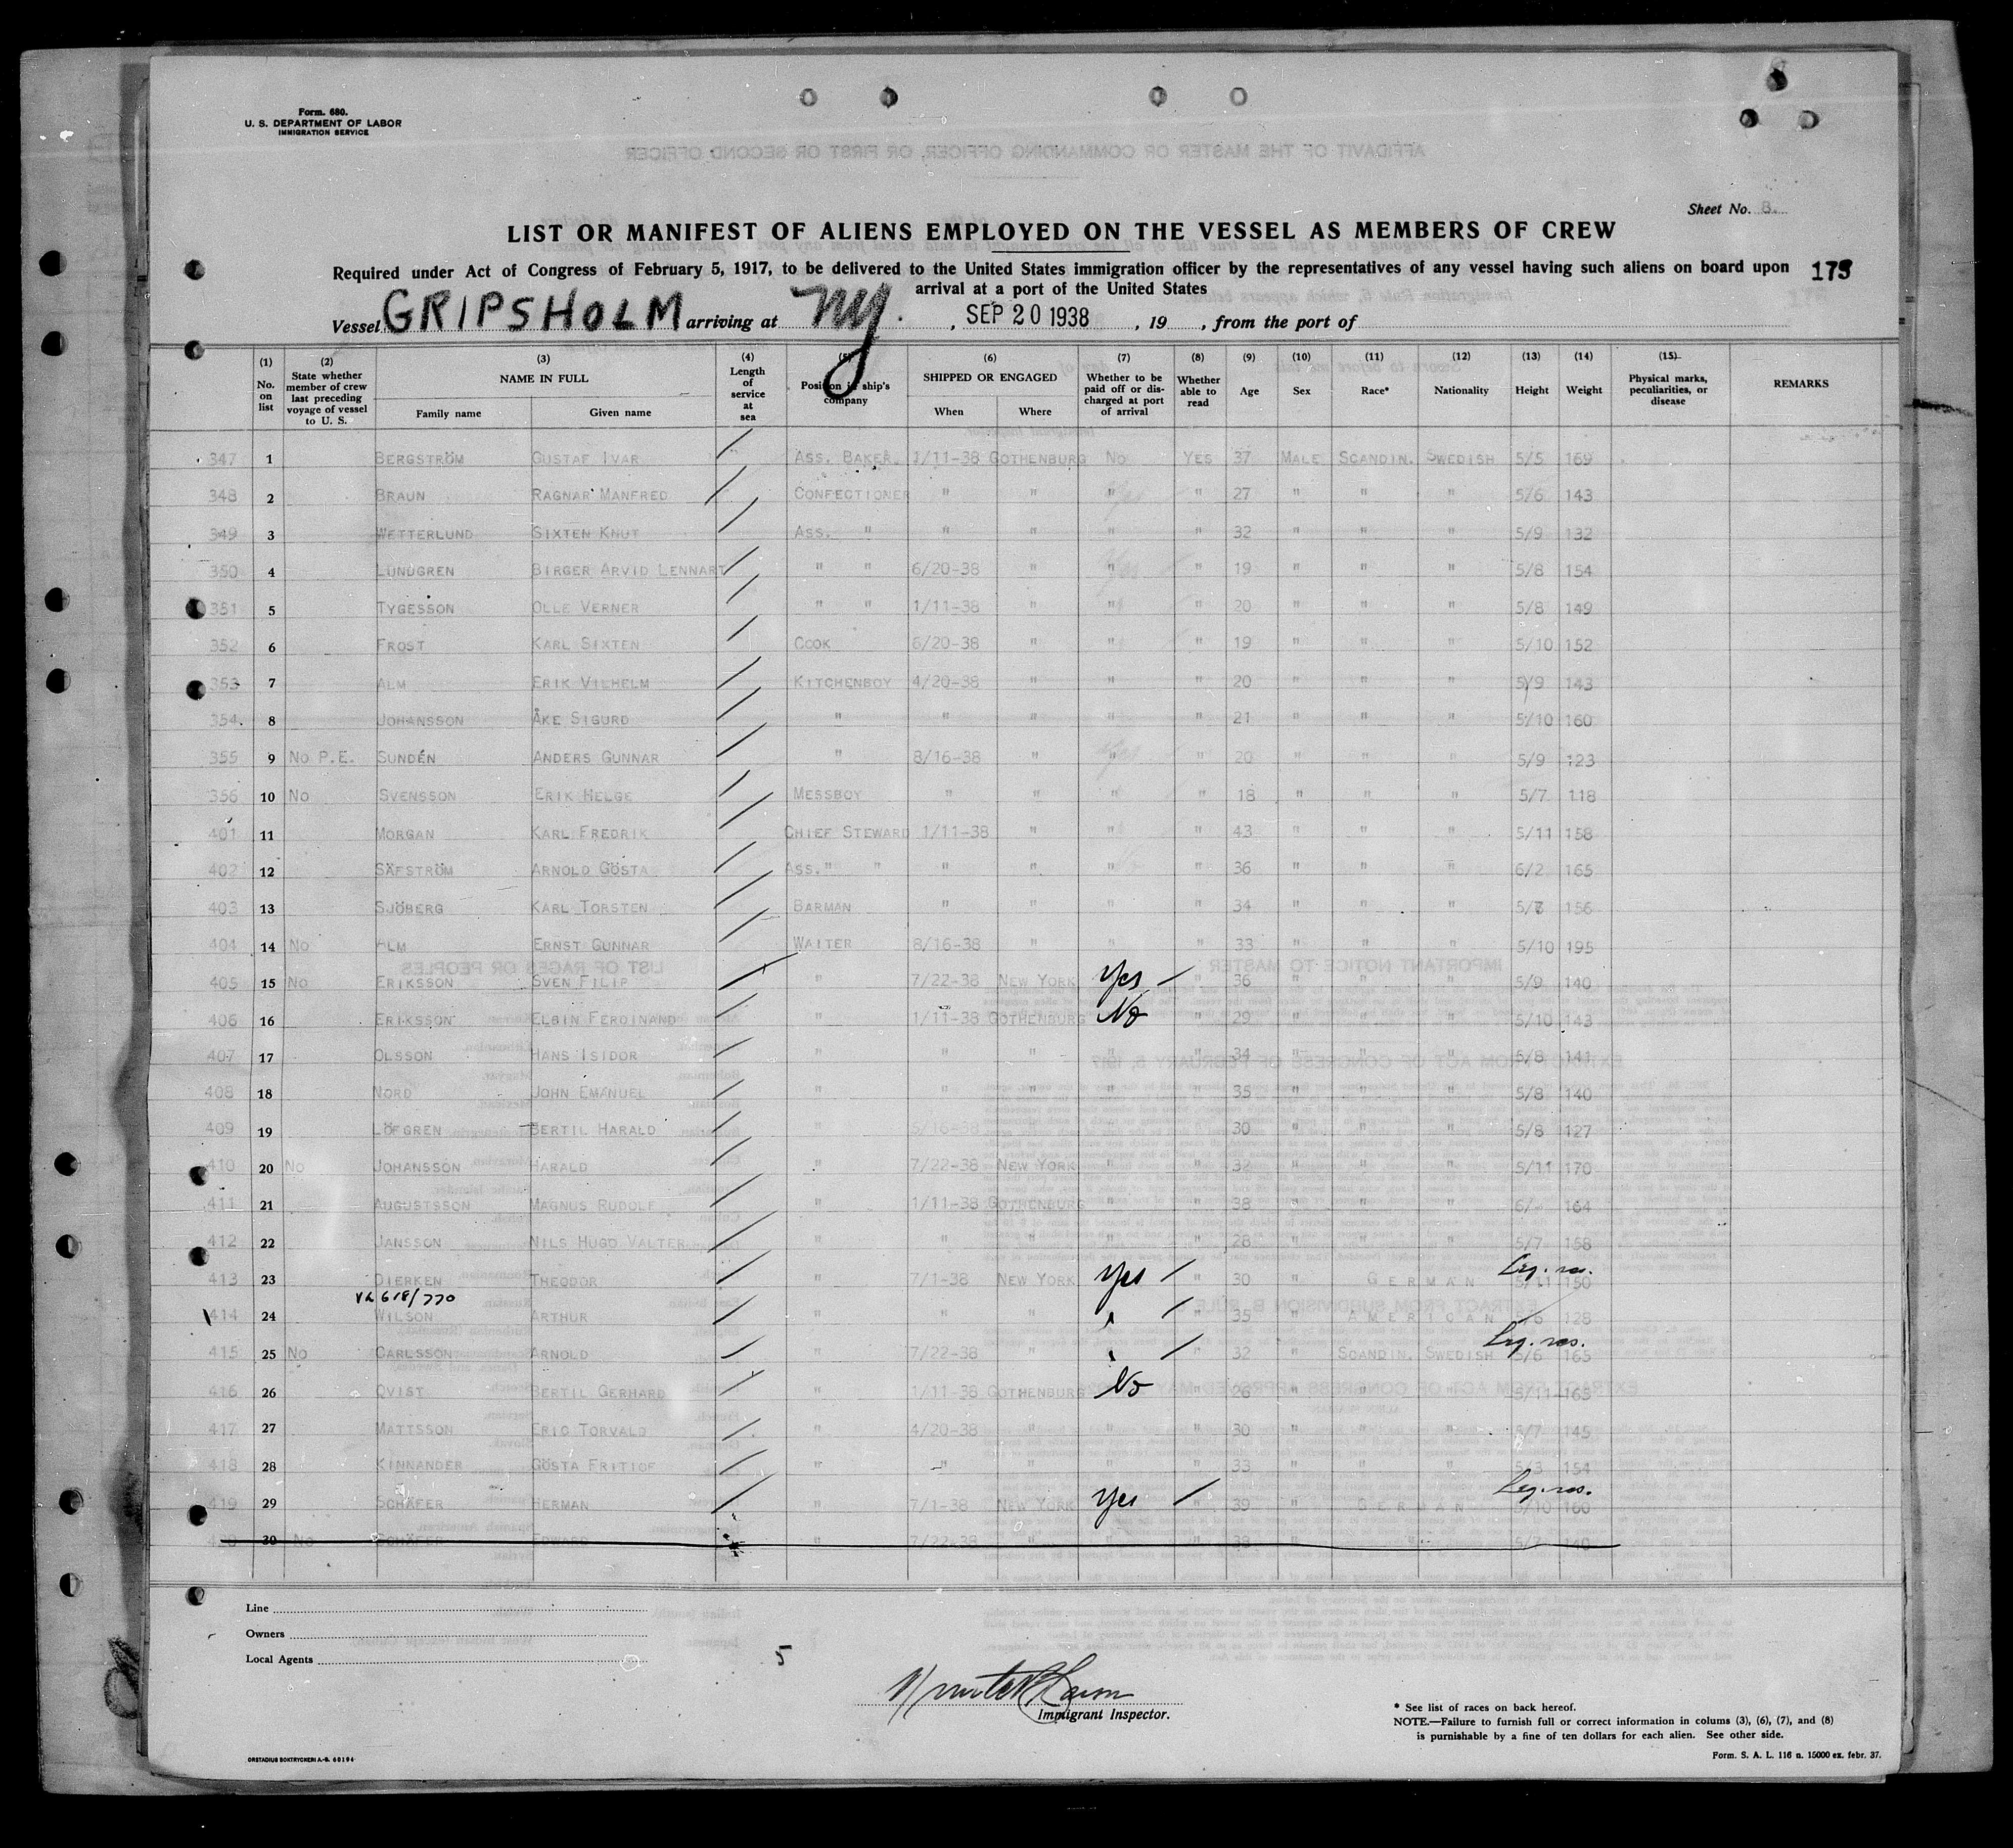 Form. 680.
U. S. DEPARTMENT OF LABOR
IMMIGRATION SERVICE
Sheet No. 8.
LIST OR MANIFEST OF ALIENS EMPLOYED ON THE VESSEL AS MEMBERS OF CREW
Required under Act of Congress of February 5, 1917, to be delivered to the United States immigration officer by the representatives of any vessel having such aliens on board upon
arrival at a port of the United States
173
Vessel GRIPSHOLM arriving at NY. , SEP 20 1938 , 19 , from the port of
(1) No. on list (2) State whether member of crew last preceding voyage of vessel to U. S. (3) NAME IN FULL Family name Given name (4) Length of service at sea (5) Position in ship's company (6) SHIPPED OR ENGAGED When Where (7) Whether to be paid off or discharged at port of arrival (8) Whether able to read (9) Age (10) Sex (11) Race* (12) Nationality (13) Height (14) Weight (15) Physical marks, peculiarities, or disease REMARKS
347 1 BERGSTRÖM GUSTAF IVAR ASS. BAKER. 1/11-38 GOTHENBURG NO YES 37 MALE SCANDIN. SWEDISH 5/5 169
348 2 BRAUN RAGNAR MANFRED CONFECTIONER " " " " 27 " " " 5/6 143
349 3 WETTERLUND SIXTEN KNUT ASS. " " " " " 32 " " " 5/9 132
350 4 LUNDGREN BIRGER ARVID LENNART " " 6/20-38 " " " 19 " " " 5/8 154
351 5 TYGESSON OLLE VERNER " " 1/11-38 " " " 20 " " " 5/8 149
352 6 FROST KARL SIXTEN COOK 6/20-38 " " " 19 " " " 5/10 152
353 7 ALM ERIK VILHELM KITCHENBOY 4/20-38 " " " 20 " " " 5/9 143
354. 8 JOHANSSON ÅKE SIGURD " " " " " 21 " " " 5/10 160
355 9 NO P.E. SUNDÉN ANDERS GUNNAR " 8/16-38 " " " 20 " " " 5/9 123
356 10 NO SVENSSON ERIK HELGE MESSBOY " " " " 18 " " " 5/7 118
401 11 MORGAN KARL FREDRIK CHIEF STEWARD 1/11-38 " " " 43 " " " 5/11 158
402 12 SÄFSTRÖM ARNOLD GÖSTA ASS. " " " " " " 36 " " " 6/2 165
403 13 SJÖBERG KARL TORSTEN BARMAN " " " " 34 " " " 156
404 14 NO ALM ERNST GUNNAR WAITER 8/16-38 " " " 33 " " " 5/10 195
405 15 NO ERIKSSON SVEN FILIP " 7/22-38 NEW YORK Yes " 36 " " " 5/9 140
406 16 ERIKSSON ELBIN FERDINAND " 1/11-38 GOTHENBURG No " 29 " " " 5/10 143
407 17 OLSSON HANS ISIDOR " " " " " 34 " " " 5/8 141
408 18 NORD JOHN EMANUEL " " " " " 35 " " " 5/8 140
409 19 LÖFGREN BERTIL HARALD " 5/16-38 " " " 30 " " " 5/8 127
410 20 NO JOHANSSON HARALD " 7/22-38 NEW YORK " " 32 " " " 5/11 170
411 21 AUGUSTSSON MAGNUS RUDOLF " 1/11-38 GOTHENBURG " " 38 " " " 6/- 164
412 22 JANSSON NILS HUGO VALTER " " " " " 28 " " " 5/7 158
413 23 DIERKEN THEODOR " 7/1-38 NEW YORK Yes " 30 " GERMAN 5/11 150 Leg. res.
VL 618/770
414 24 WILSON ARTHUR " " " " " 35 " AMERICAN 5/6 128
415 25 NO CARLSSON ARNOLD " 7/22-38 " " " 32 " SCANDIN. SWEDISH 5/6 165 Leg. res.
416 26 QVIST BERTIL GERHARD " 1/11-38 GOTHENBURG No " 26 " " " 5/11 163
417 27 MATTSSON ERIC TORVALD " 4/20-38 " " " 30 " " " 5/7 145
418 28 KINNANDER GÖSTA FRITIOF " " " " " 33 " " " 5/3 154
419 29 SCHÄFER HERMAN " 7/1-38 NEW YORK Yes " 39 " GERMAN 5/10 160 Leg. res.
420 30 NO SCHÄFER EDWARD " 7/22-38 " " " 38 " " 5/7 140
Line
Owners
Local Agents
5
Immigrant Inspector.
* See list of races on back hereof.
NOTE.—Failure to furnish full or correct information in colums (3), (6), (7), and (8)
is punishable by a fine of ten dollars for each alien. See other side.
ORSTADIUS BOKTRYCKERI A.-B. 60194
Form. S. A. L. 116 n. 15000 ex. febr. 37.